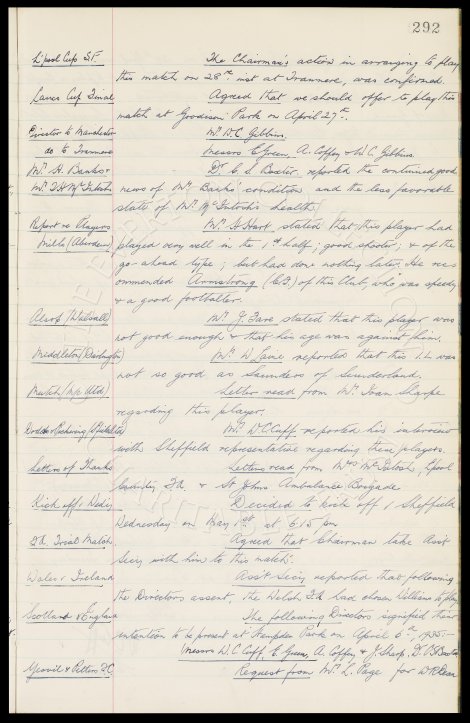 292
L'pool Cup S.F. The Chairman's action in arranging to play
this match on 28th inst at Tranmere, was confirmed.
Lancs Cup Final Agreed that we should offer to play this
match at Goodison Park on April 27th.
Director to Manchester Mr. W.C. Gibbins.
do to Tranmere Messrs E. Green, A. Coffey & W.C. Gibbins.
Mr. H. Banks & Dr. C.S. Baxter reported the continued good
Mr. T.H. McIntosh news of Mr. Banks' condition and the less favorable
state of Mr. McIntosh's health.
Report re Players Mr. H. Hart stated that this player had
Mills (Aberdeen) played very well in the 1st half; good shooter; & of the
go-ahead type; but had done nothing later. He rec-
ommended Armstrong (C.F.) of this Club, who was speedy
& a good footballer.
Alsop (Walsall) Mr. J. Fare stated that this player was
not good enough & that his age was against him.
Middleton (Darlington) Mr. W. Lane reported that this I.L. was
not so good as Saunders of Sunderland.
Mutch (M/c Utd) Letter read from Mr. Ivan Sharpe
regarding this player.
Dodds & Pickering (Sheffield U) Mr. W.C. Cuff reported his interview
with Sheffield representative regarding these players.
Letters of Thanks Letters read from Mrs McIntosh, L'pool
County F.A. & St Johns Ambulance Brigade
Kick off v Wed'y Decided to kick off v Sheffield
Wednesday on May 1st at 6.15 pm
F.A. Trial Match Agreed that Chairman take Asst
Secy with him to this match.
Wales v Ireland Asst Secy reported that following
the Directors assent, the Welsh F.A. had chosen Williams to play
Scotland v England The following Directors signified their
intention to be present at Hampden Park on April 6th, 1935:-
Messrs W.C. Cuff, E. Green, A. Coffey & J. Sharp, Dr. C.S. Baxter
Yeovil & Petters F.C. Request from Mr. L. Page for W.R. Dean